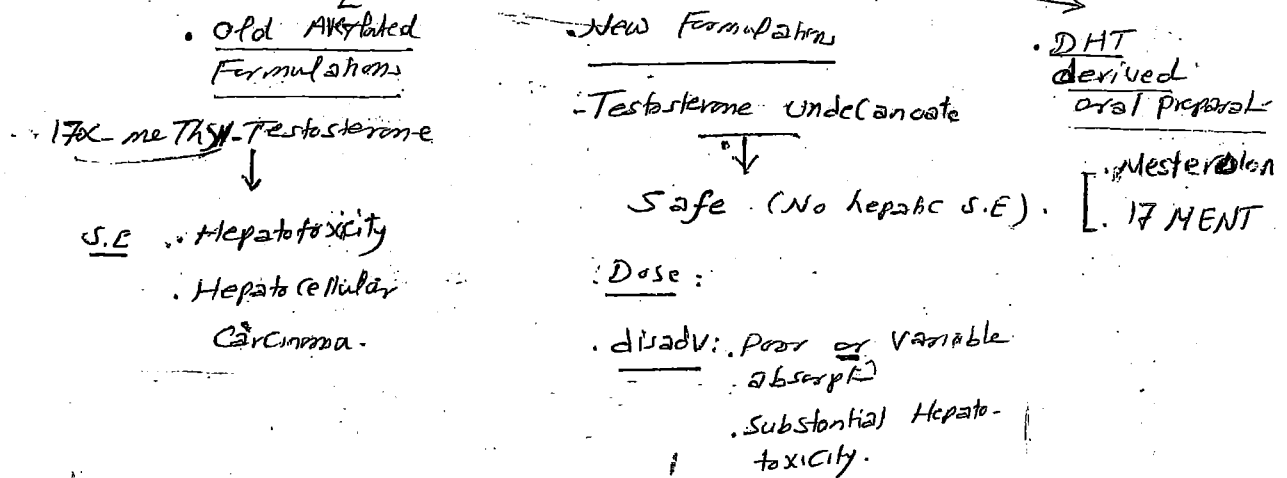 . Old Alkylated
Formulations
17α-methyl-Testosterone
↓
S.E . Hepatotoxicity
. Hepatocellular
Carcinoma.
. New Formulations
- Testosterone Undecanoate
↓
Safe (No hepatic S.E).
. Dose :
. disadv: . Poor or Variable
absorpt
. Substantial Hepato-
toxicity.
. DHT
derived
oral preparat
. Mesterolon
. 17 MENT